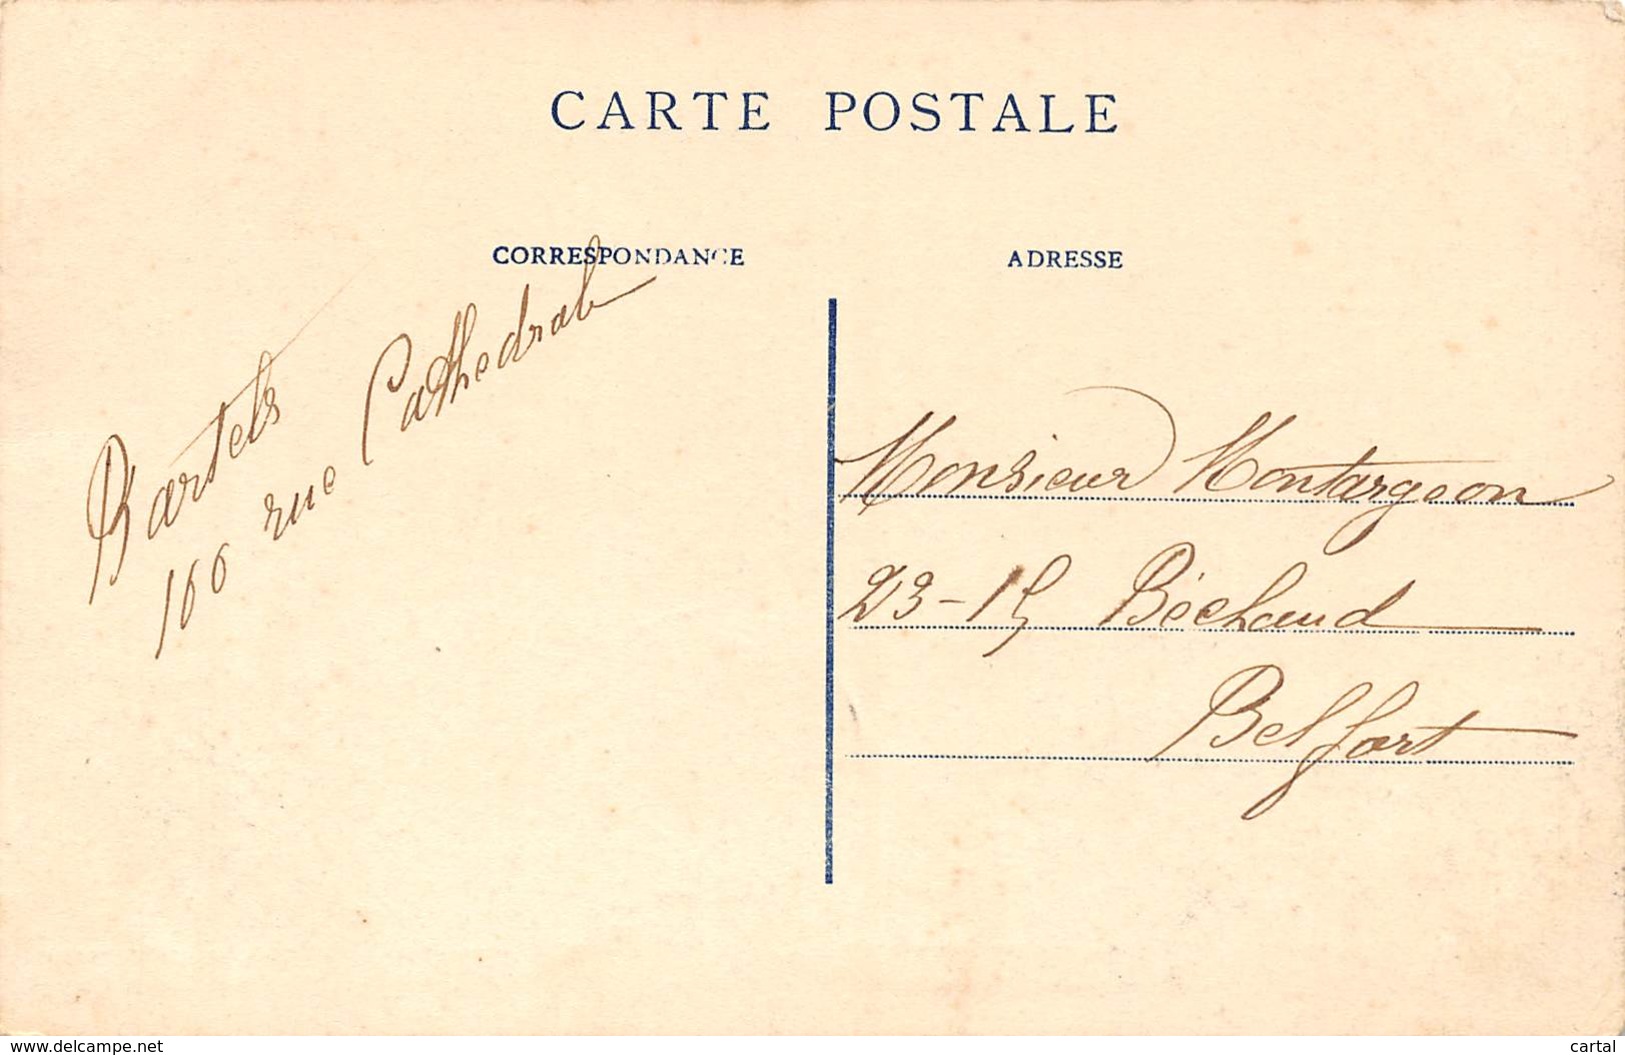 CARTE POSTALE
CORRESPONDANCE
ADRESSE
Bartels
166 rue Cathedrale
Monsieur Montargeon
23-15 Béchaud
Belfort
www.delcampe.net
cartal